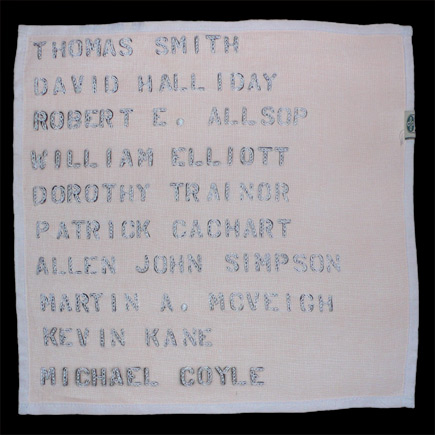 THOMAS SMITH
DAVID HALLIDAY
ROBERT E. ALLSOP
WILLIAM ELLIOTT
DOROTHY TRAINOR
PATRICK CACHART
ALLEN JOHN SIMPSON
MARTIN A. MCVEIGH
KEVIN KANE
MICHAEL COYLE